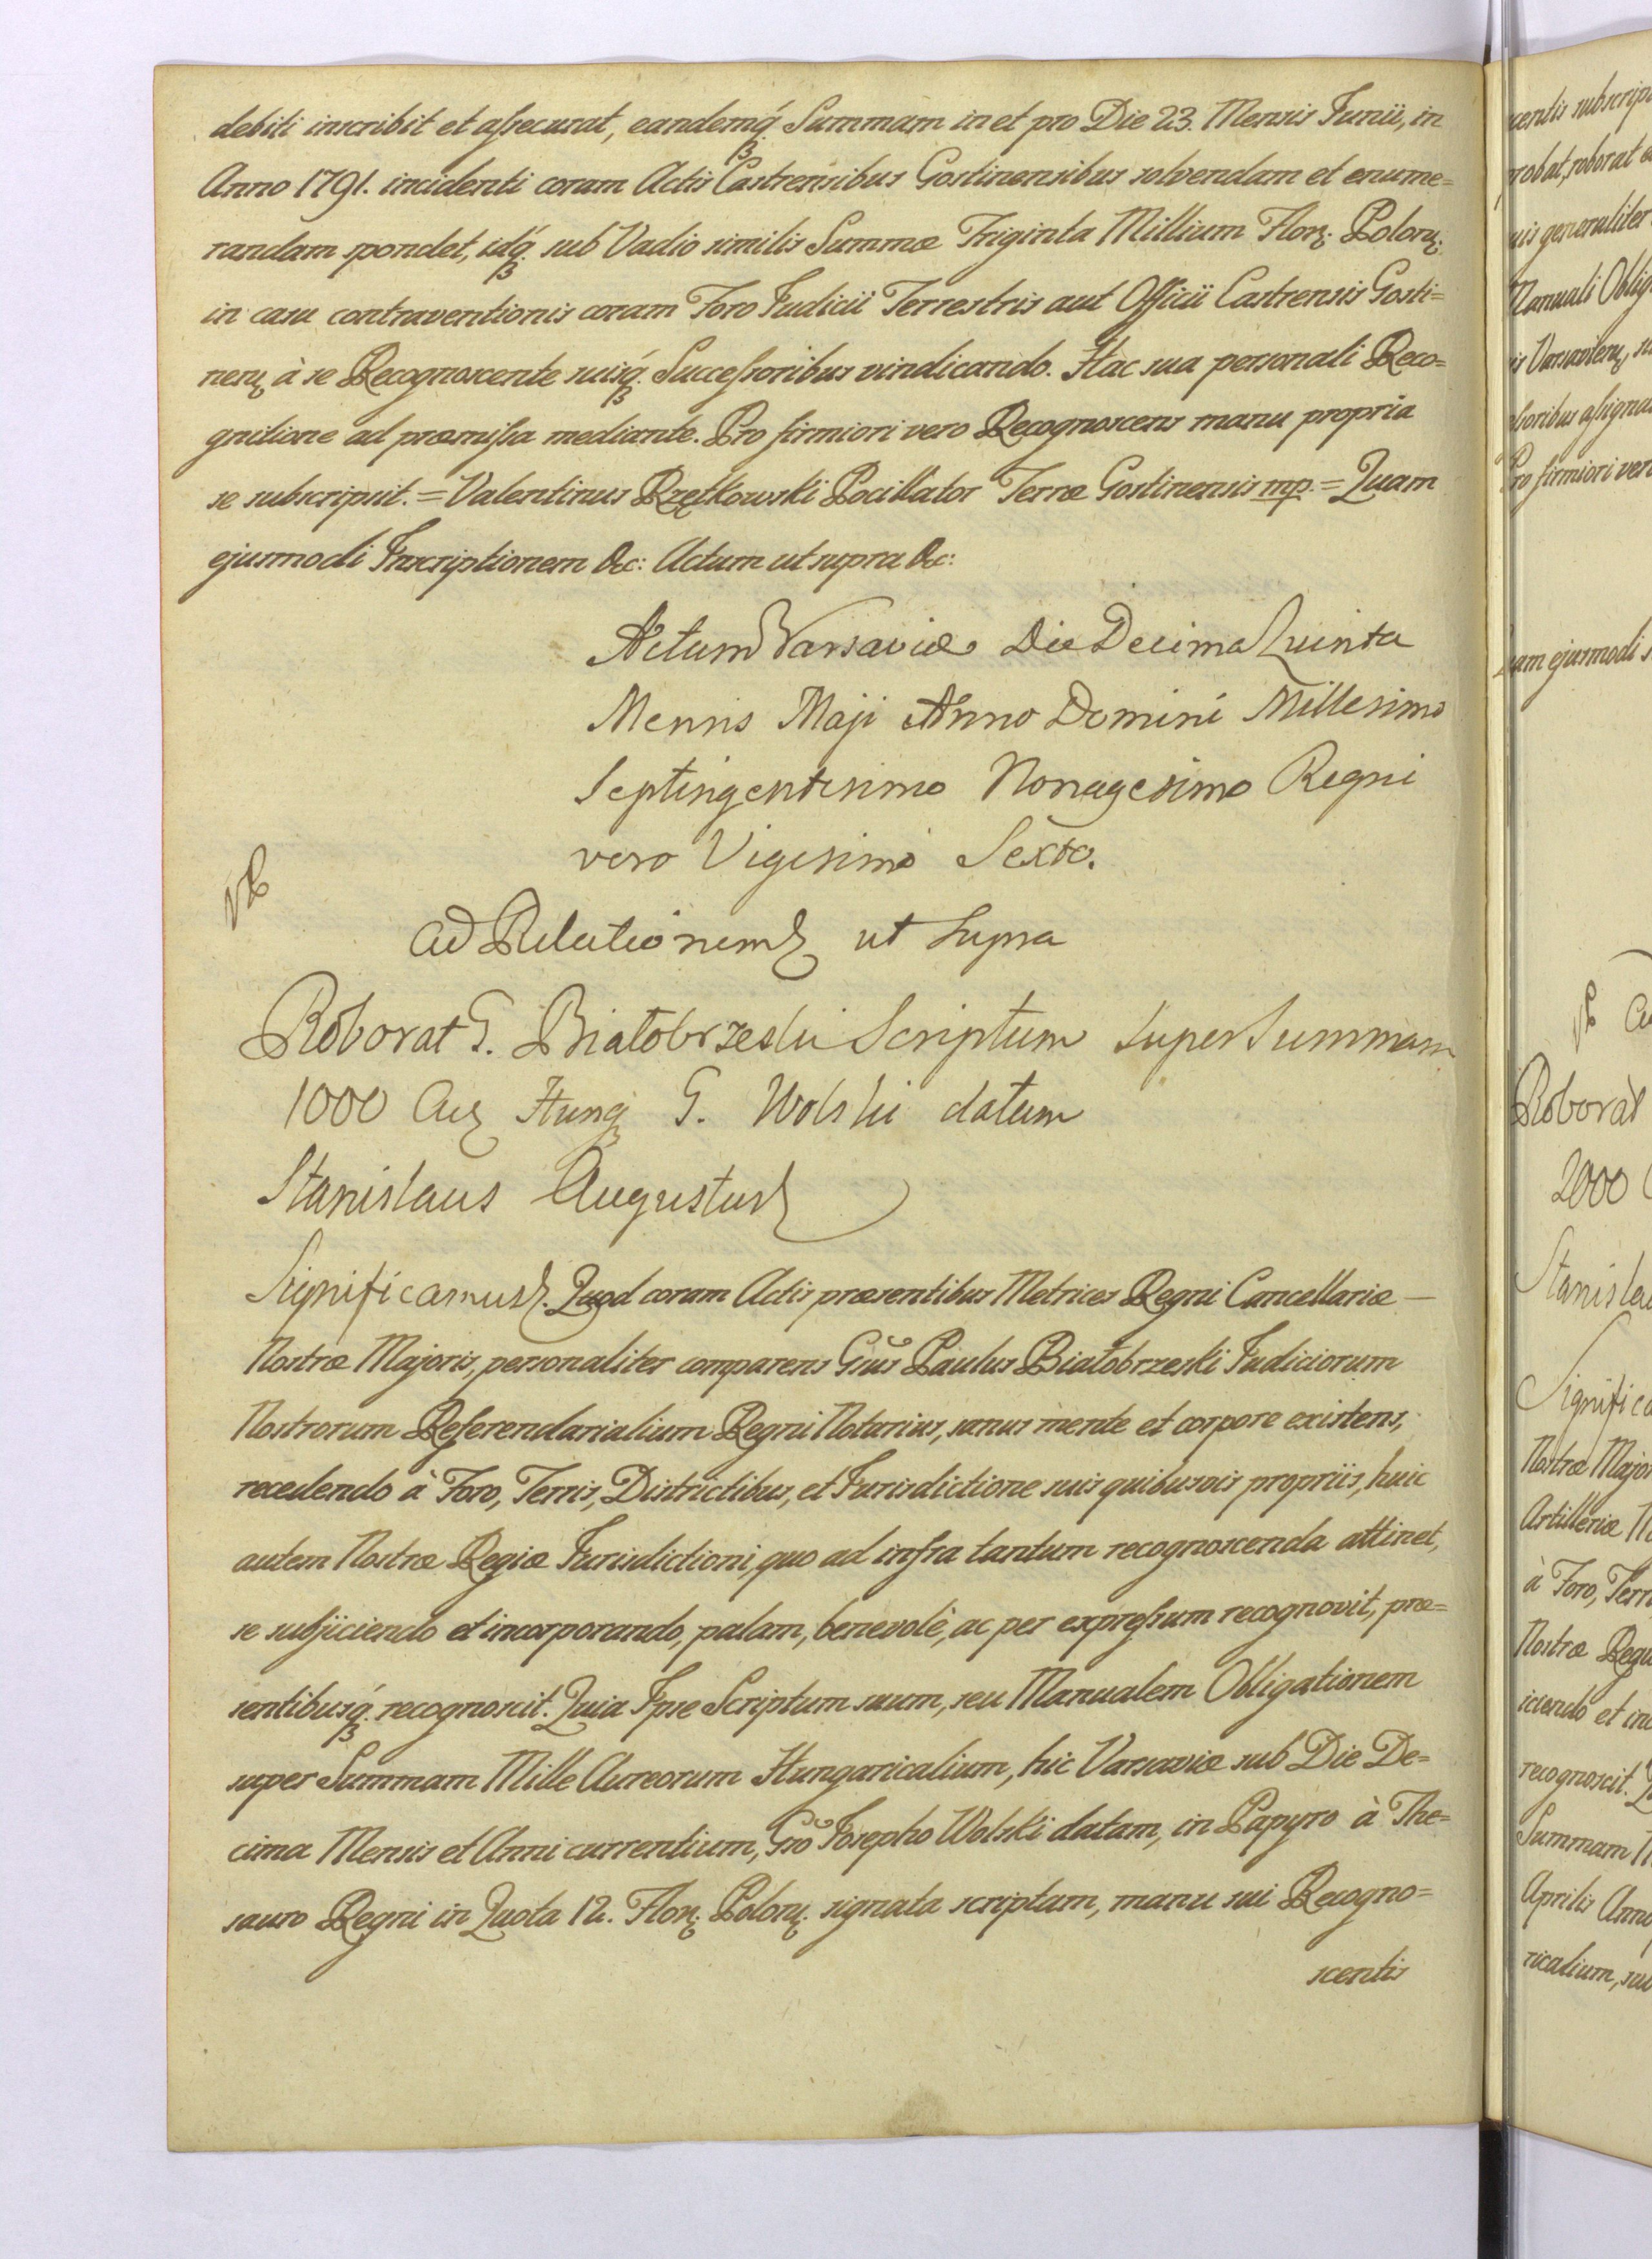 debiti inscribit et assecurat, eandemq́ꝫ. Summam in et pro Die 23. Mensis Junii, in
Anno 1791. incidenti coram Actis Castrensibus Gostinensibus solvendam et enume=
randam spondet, idq́ꝫ. sub Vadio similis Summæ Triginta Millium Floꝝ. Poloꝝ.
in casu contraventionis coram Foro Judicii Terrestris aut Officii Castrensis Gosti=
neꝝ à se Recognoscente suisq́ꝫ. Successoribus vindicando. Hac sua personali Reco=
gnitione ad præmissa mediante. Pro firmiori vero Recognoscens manu propria
se subscripsit. = Valentinus Rzętkowski Pocillator Terræ Gostinensis mp. = Quam
ejusmodi Inscriptionem &c: Actum ut supra &c:
Actum Varsaviæ Die Decima Quinta
Mensis Maji Anno Domini Millesimo
Septingentesimo Nonagesimo Regni
vero Vigesimo Sexto.
Ad Relationem ut Supra
Roborat G. Białobrzeski Scriptum super Summam
1000 Auꝝ Hunꝝ G. Wolski datum
Stanislaus Augustus
Significamus. Quod coram Actis præsentibus Metrices Regni Cancellariæ —
Nostræ Majoris, personaliter comparens Gn̄us Paulus Białobrzeski Judiciorum
Nostrorum Referendarialium Regni Notarius, sanus mente et corpore existens,
recedendo à Foro, Terris, Districtibus, et Jurisdictione suis quibusvis propriis, huic
autem Nostræ Regiæ Jurisdictioni, quo ad infra tantum recognoscenda attinet,
se subjiciendo et incorporando, palam, benevolè, ac per expressum recognovit, præ=
sentibusq́ꝫ. recognoscit. Quia Ipse Scriptum suum, seu Manualem Obligationem
super Summam Mille Aureorum Hungaricalium, hic Varsaviæ sub Die De=
cima Mensis et Anni currentium, Gn̄o Josepho Wolski datam, in Papyro à The=
sauro Regni in Quota 12. Floꝝ. Poloꝝ. signata scriptam, manu sui Recogno=
scentis
centis
uis generaliter
Manuali
Pro firmiori
ejusmodi
Roborat
2000
Nostræ
Artilleriæ
à Foro,
Nostræ
iciendo et
recognoscit.
Summam
Aprilis
ricalium,